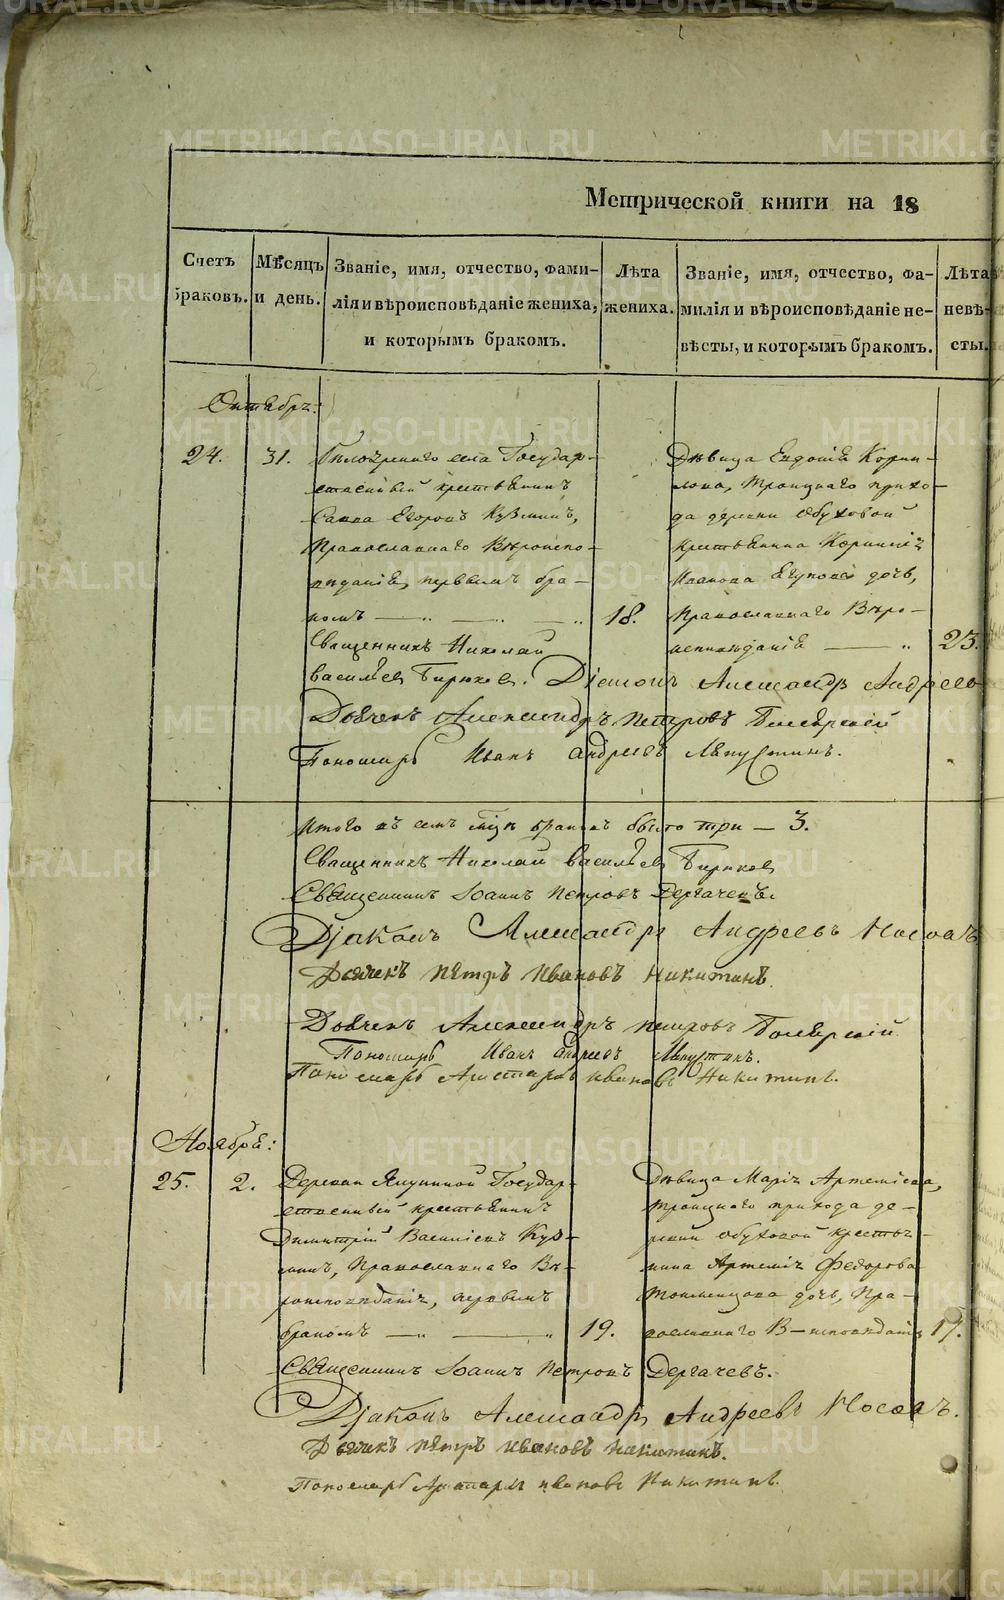 Метрической книги на 18
Счетъ браковъ.
Мѣсяцъ и день.
Званіе, имя, отчество, фами-
лія и вѣроисповѣданіе жениха,
и которымъ бракомъ.
Лѣта
жениха.
Званіе, имя, отчество, фа-
милія и вѣроисповѣданіе не-
вѣсты, и которымъ бракомъ.
Лѣта
невѣ-
сты.
Октябрь:
24.
31.
села Государ-
ственный крестьянинъ
Савва Егоровъ Кузминъ,
Православнаго Вѣроиспо-
вѣданія, первымъ бра-
комъ
18.
Дѣвица Евдокія Корни-
лова, Троицкаго прихо-
да деревни Обуховой
крестьянина Корнилія
Иванова дочь,
Православнаго Вѣро-
исповѣданія
23.
Священникъ Николай
Васильевъ Бирюковъ. Діаконъ Александръ Андреевъ
Дьячекъ Александръ Петровъ
Пономарь Иванъ Андреевъ Ляпустинъ.
Итого въ семъ браковъ было три — 3.
Священникъ Николай Васильевъ Бирюковъ
Священникъ Іоаннъ Петровъ Дергачевъ.
Діаконъ Александръ Андреевъ Носовъ
Дьячекъ Петръ Ивановъ Никитинъ.
Дьячекъ Александръ Петровъ
Пономарь Иванъ Андреевъ Ляпустинъ.
Пономарь Аристархъ Ивановъ Никитинъ.
Ноябрь:
25.
2.
Деревни Государ-
ственный крестьянинъ
Димитрій Василіевъ Куз-
минъ, Православнаго Вѣ-
роисповѣданія, первымъ
бракомъ
19.
Дѣвица Марія Артеміева,
Троицкаго прихода де-
ревни Обуховой крестья-
нина Артемія Федорова
дочь, Пра-
вославнаго В-исповѣданія
17.
Священникъ Іоаннъ Петровъ Дергачевъ.
Діаконъ Александръ Андреевъ Носовъ.
Дьячекъ Петръ Ивановъ Никитинъ.
Пономарь Аристархъ Ивановъ Никитинъ.
METRIKI.GASO-URAL.RU